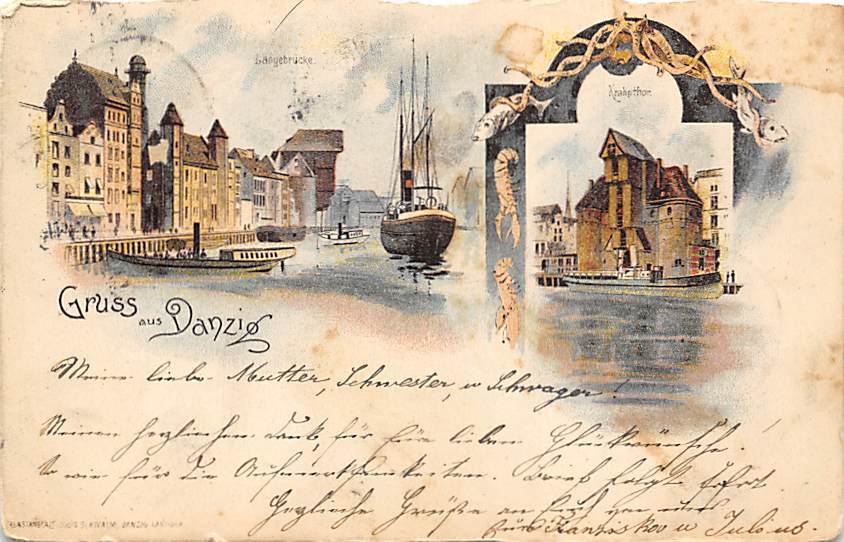 Langebrücke.
Krahnthor.
Gruss
aus Danzig
Meine liebe Mutter, Schwester, u Schwager!
Meinen herzlichen Dank, für Eure lieben Glückwünsche!
So wie für die Aufmerksamkeiten. Brief folgt sofort.
Herzliche Grüße an Euch von
Franziska u Julius.
KUNSTANSTALT DANZIG